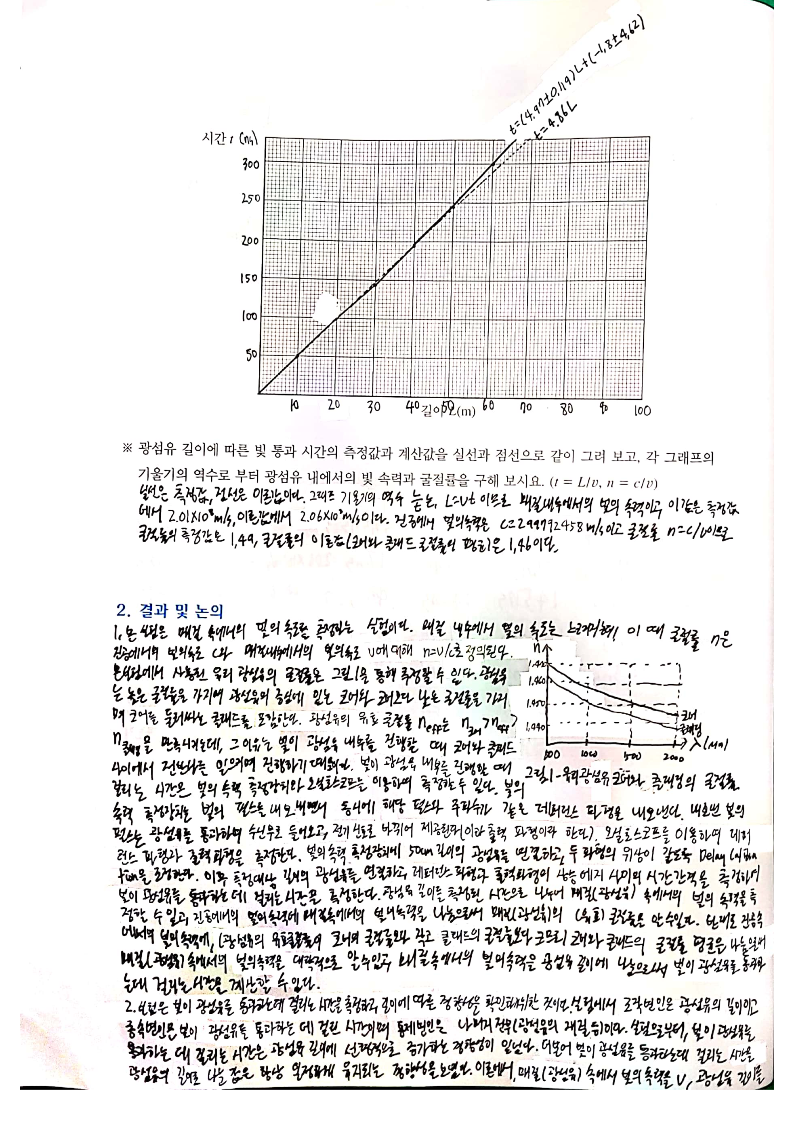 t=(4.97±0.119)L+(-1.8±4.62)
t=4.86L
시간 t (ns)
300
250
200
150
100
50
10 20 30 40 50 60 70 80 90 100
길이 L(m)
※ 광섬유 길이에 따른 빛 통과 시간의 측정값과 계산값을 실선과 점선으로 같이 그려 보고, 각 그래프의
기울기의 역수로 부터 광섬유 내에서의 빛 속력과 굴절률을 구해 보시요. (t = L/v, n = c/v)
실선은 측정값, 점선은 이론값이다. 그래프 기울기의 역수 는, L=vt 이므로 매질내부에서의 빛의 속력이고 이값은 측정값
에서 2.01X10⁸m/s, 이론값에서 2.06X10⁸m/s이다. 진공에서 빛의속력은 C=299792458m/s이고 굴절률 n=c/v이므로
굴절률의 측정값은 1.49, 굴절률의 이론값(코어와 클래드 굴절률의 평균)은 1.46이다.
2. 결과 및 논의
1. 본 실험은 매질 속에서의 빛의 속도를 측정하는 실험이다. 매질 내부에서 빛의 속도는 이 때 굴절률 n은
진공에서의 빛의속도 c와 매질내부에서의 빛의속도 v에 대해 n=v/c로 정의된다.
본실험에서 사용된 유리 광섬유의 굴절률은 그림1을 통해 측정할 수 있다. 광섬유
는 높은 굴절률을 가지며 광섬유의 중심에 있는 코어와 코어보다 낮은 굴절률을 가지
며 코어를 둘러싸는 클래드를 포함한다. 광섬유의 유효 굴절률 neff은
을 만족시키는데, 그 이유는 빛이 광섬유 내부를 진행할 때 코어와 클래드
사이에서 전반사를 일으키며 진행하기 때문이다. 빛이 광섬유 내부를 진행할 때
걸리는 시간은 빛의 속력 측정장치와 오실로스코프를 이용하여 측정할 수 있다. 빛의
n
1.460
1.450
1.440
코어
클래딩
500 1000 2000 λ
그림1-유리광섬유 코어와 클래딩의 굴절률
속력 측정장치는 빛의 펄스를 내보내면서 동시에 해당 펄스와 주파수가 같은 레퍼런스 파형을 내보낸다. 내보낸 빛의
펄스는 광섬유를 통과하여 수신부로 들어오고, 전기신호로 바뀌어 출력 파형이라 한다). 오실로스코프를 이용하여 레퍼
런스 파형과 출력파형을 측정한다. 빛의속력 측정장치에 50cm 길이의 광섬유를 연결하고, 두 파형의 위상이 같도록 Delay
조정한다. 이후 측정대상 길이의 광섬유를 연결하고, 레퍼런스 파형과 출력파형의 사이의 시간간격을 측정하여
빛이 광섬유를 통과하는 데 걸리는 시간을 측정한다. 광섬유 길이를 측정된 시간으로 나누어 매질(광섬유) 속에서의 빛의 속력을 측
정할 수 있고, 진공에서의 빛의속력에 매질속에서의 빛의속력을 나눔으로써 매질(광섬유)의 (유효) 굴절률을 알 수있다. 반대로 진공속
에서의 빛의속력에, 코어와 클래드의 굴절률 평균을 나눔으로써
매질(광섬유) 속에서의 빛의속력을 대략적으로 알 수있고 매질속에서의 빛의속력을 광섬유 길이에 나눔으로써 빛이 광섬유를 통과하
는데 걸리는 시간을 계산할 수 있다.
2. 실험은 빛이 광섬유를 통과하는데 걸리는 시간을 측정하고 길이에 따른 경향성을 확인하기위한 것이다. 실험에서 조작변인은 광섬유의 길이이고
종속변인은 빛이 광섬유를 통과하는 데 걸린 시간이며 통제변인은 나머지 전부(광섬유의 재질 등)이다. 실험으로부터, 빛이 광섬유를
통과하는 데 걸리는 시간은 광섬유 길이에 선형적으로 증가하는 경향성이 있었다. 더불어 빛이 광섬유를 통과하는데 걸리는 시간을
광섬유의 길이로 나눈 값은 항상 일정하게 유지되는 경향성을 보였다. 이론에서, 매질(광섬유) 속에서 빛의 속력을 v, 광섬유 길이를